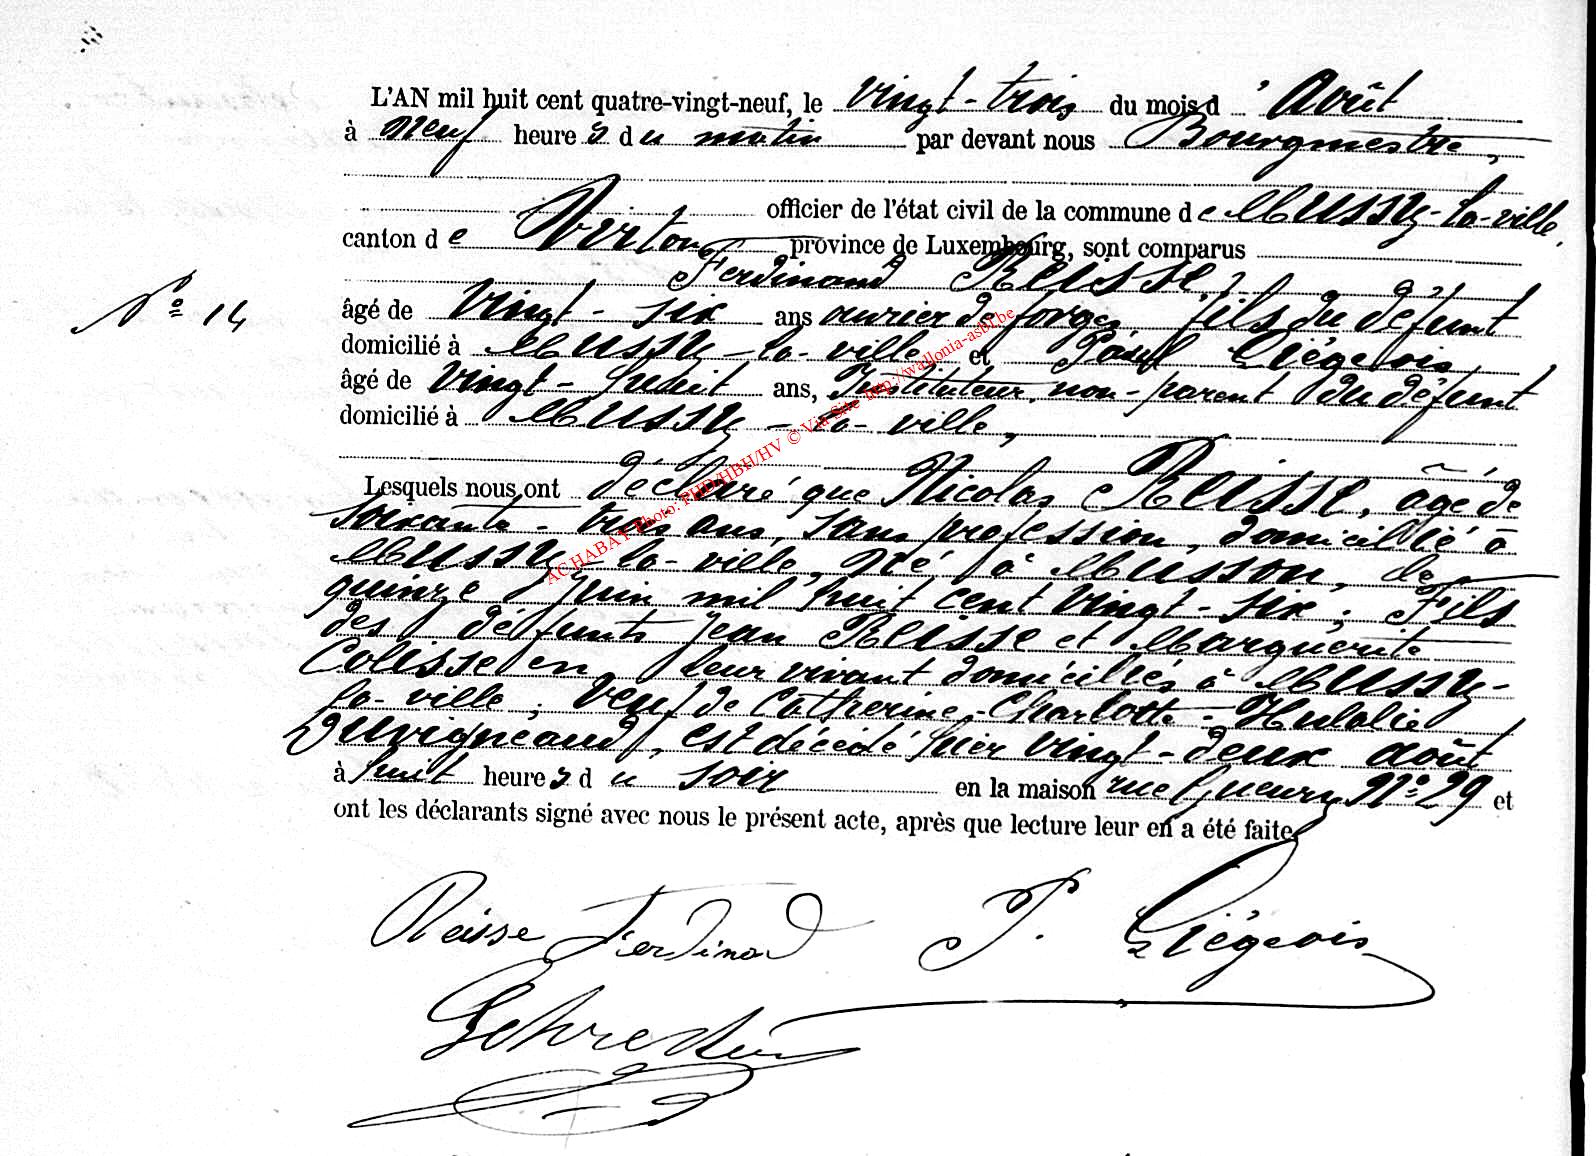 L'AN mil huit cent quatre-vingt-neuf, le vingt-trois du mois d'Août
à neuf heures du matin par devant nous Bourgmestre,
officier de l'état civil de la commune de Mussy-la-ville,
canton de Virton province de Luxembourg, sont comparus
Ferdinand Reisse,
N° 14
âgé de vingt-six ans ouvrier de forges, fils du défunt
domicilié à Mussy-la-ville et Paul Liégeois
âgé de vingt-huit ans, Instituteur, non-parent du défunt
domicilié à Mussy-la-ville,
Lesquels nous ont déclaré que Nicolas Reisse, âgé de
soixante-trois ans, sans profession, domicilié à
Mussy-la-ville, né à Musson, le
quinze Juin mil huit cent vingt-six; Fils
des défunts Jean Reisse et Marguerite
Colisse en leur vivant domiciliés à Mussy-
la-ville; veuf de Catherine-Charlotte-Hulalie
Duvigneaud, est décédé hier vingt-deux août
à huit heures du soir en la maison rue Gueury N° 29 et
ont les déclarants signé avec nous le présent acte, après que lecture leur en a été faite
Reisse Ferdinand P. Liégeois
AC HABAY Photo: PHD/HBH/HV © Via Site http://wallonia-asbl.be